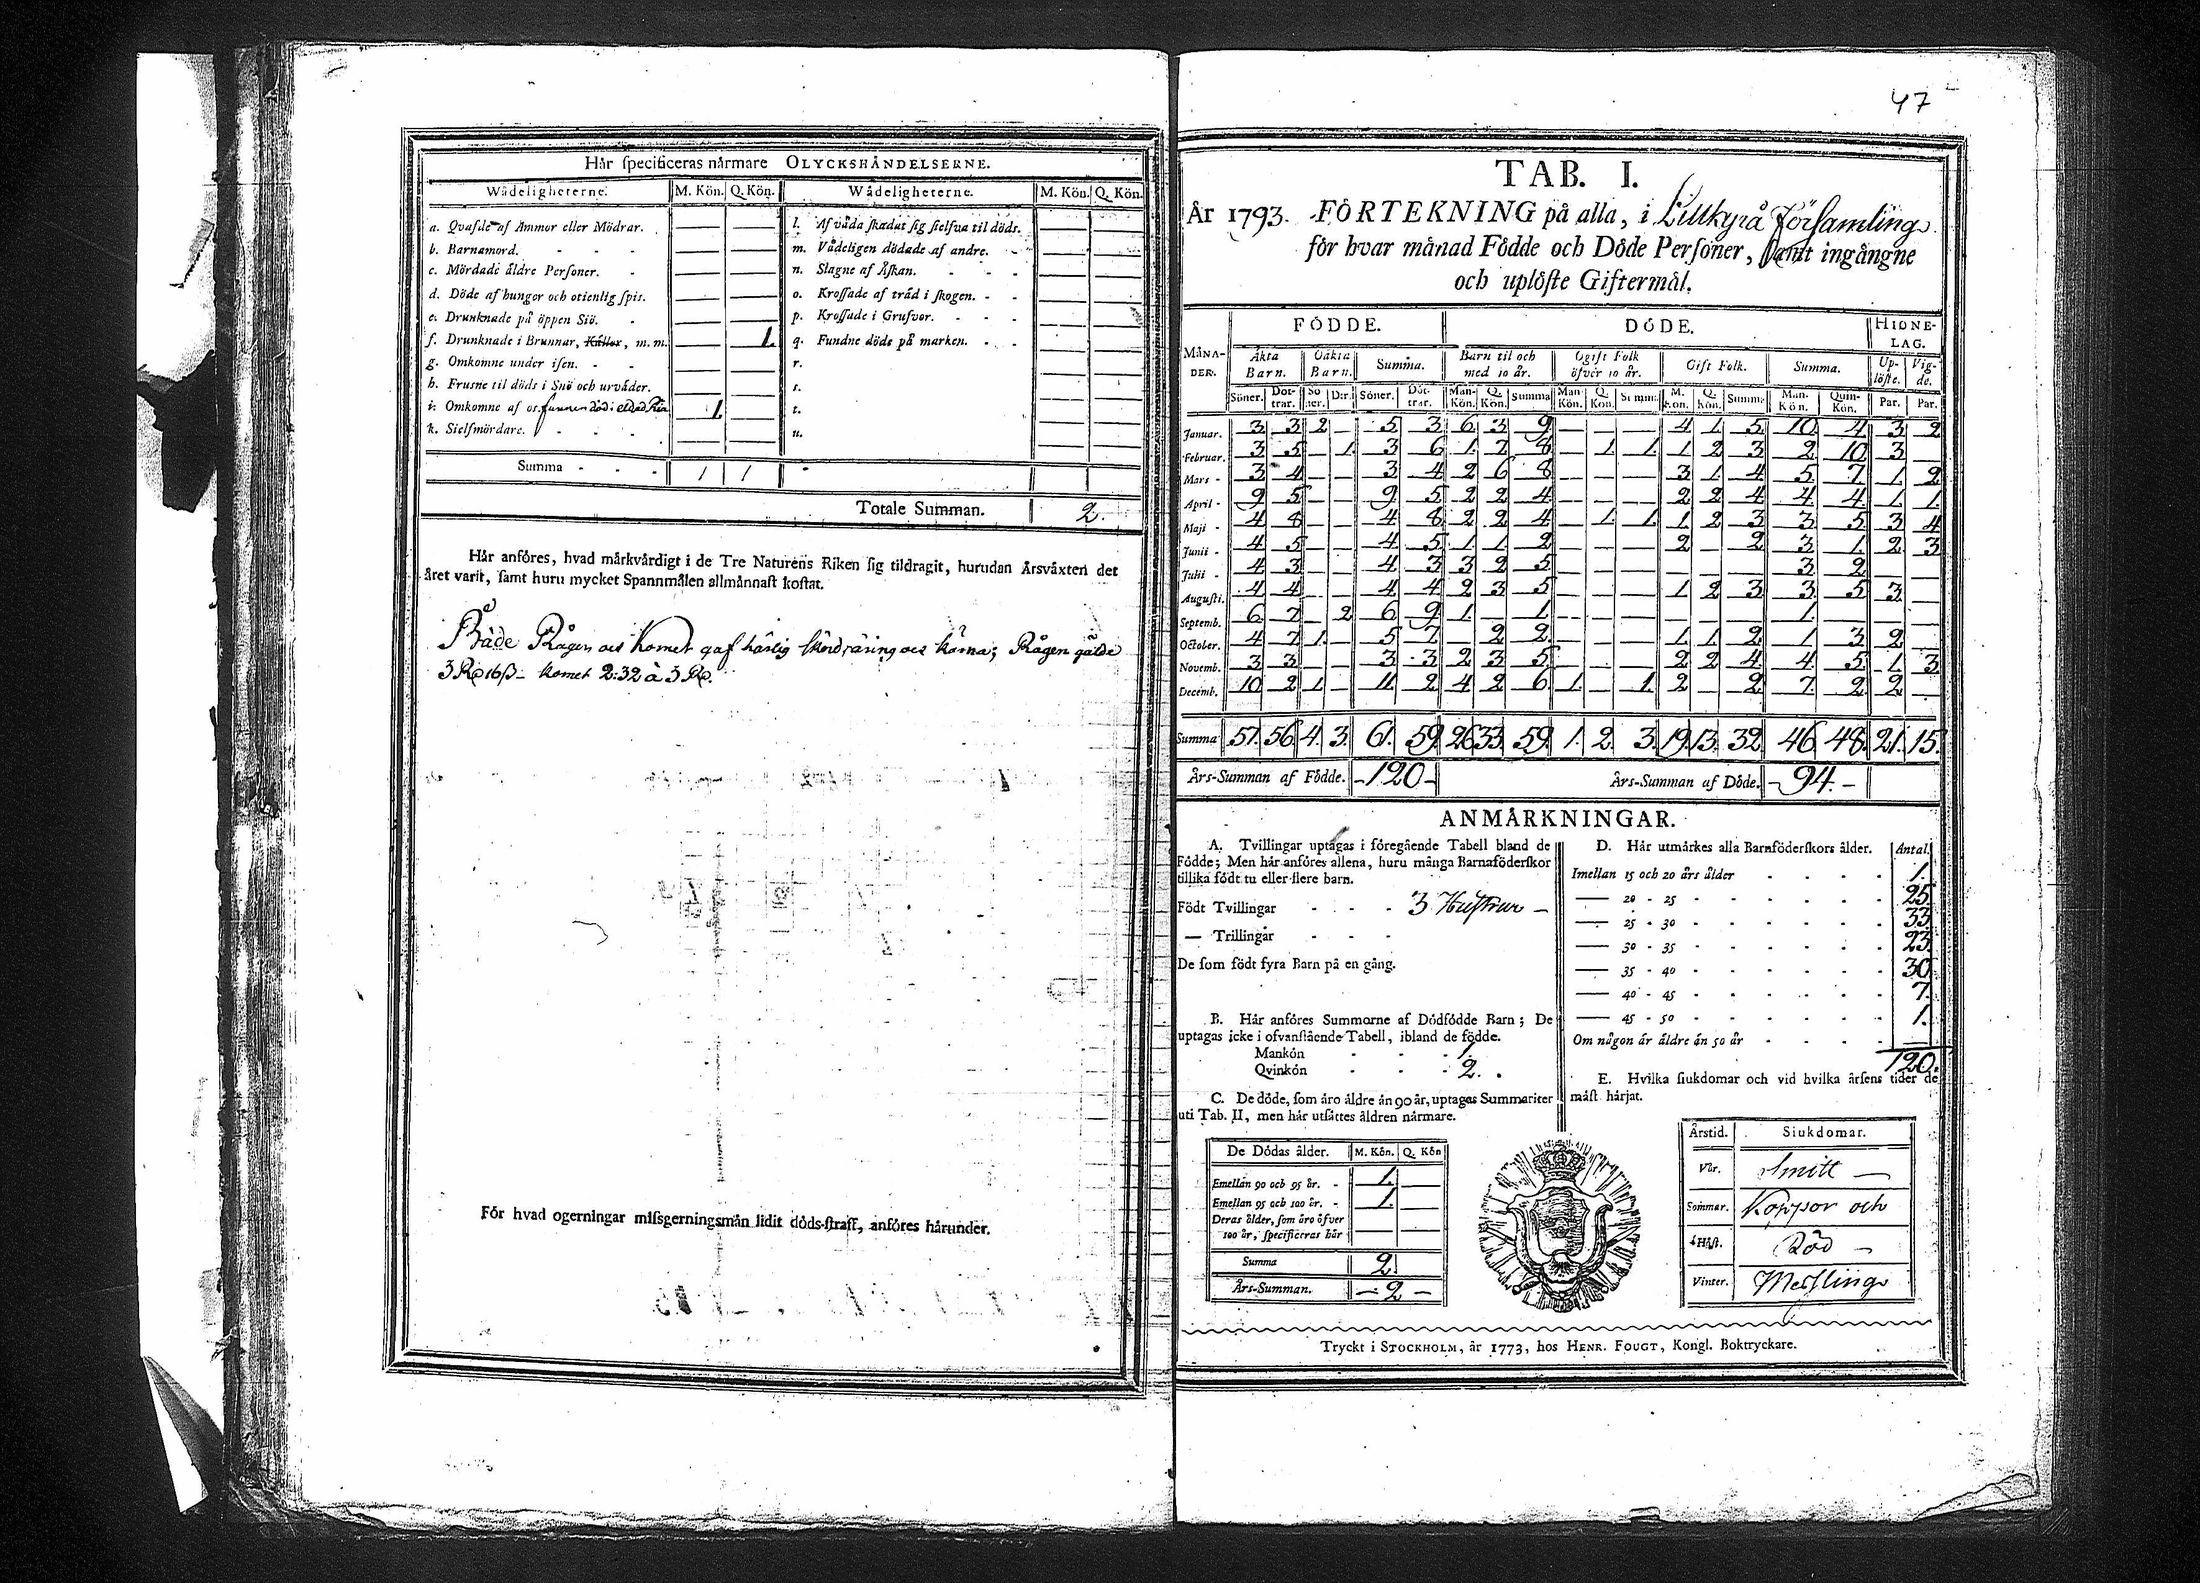 Här ſpecificeras närmare OLYCKSHÄNDELSERNE.
Wådeligheterne. M. Kön. Q. Kön. Wådeligheterne. M. Kön. Q. Kön.
a. Qvafde af Ammor eller Mödrar. — — l. Af våda ſkadat ſig ſielfva til döds. — —
b. Barnamord. - - — — m. Vådeligen dödade af andre. - — —
c. Mördade äldre Perſoner. - — — n. Slagne af Åſkan. - - - — —
d. Döde af hunger och otienlig ſpis. — — o. Kroſſade af träd i ſkogen. - - — —
e. Drunknade på öppen Siö. - — — p. Kroſſade i Grufvor. - - - — —
f. Drunknade i Brunnar, Källor, m.m. — 1. q. Fundne döde på marken. - - — —
g. Omkomne under iſen. - - — — r. — —
h. Fruſne til döds i Snö och urväder. — — s. — —
i. Omkomne af os. 1. — t. — —
k. Sielfmördare. - - - — — u. — —
Summa - - - 1 1
Totale Summan. 2.
Här anföres, hvad märkvärdigt i de Tre Naturens Riken ſig tildragit, hurudan Årsväxten det
året varit, ſamt huru mycket Spannmålen allmännaſt koſtat.
Både Rågen och Kornet gaf härlig skörd, råning och kärna; Rågen gälde
3 Rd 16 ß - kornet 2:32 à 3 Rd.
För hvad ogerningar miſsgerningsmän lidit döds-ſtraff, anföres härunder.
47
TAB. I.
År 1793. FÖRTEKNING på alla, i Lillkyrå Församling
för hvar månad Födde och Döde Perſoner, ſamt ingångne
och uplöſte Giftermål.
FÖDDE. DÖDE. HIONE-LAG.
MÅNA-DER. Äkta Barn. Oäkta Barn. Summa. Barn til och med 10 år. Ogift Folk öfver 10 år. Gift Folk. Summa. Up-löſte. Vig-de.
Söner. Döt-trar. Sö-ner. D:r. Söner. Döt-trar. Man-Kön. Q. Kön. Summa Man-Kön. Q. Kön. Summa M. Kön. Q. Kön. Summa Man-Kön. Quin-Kön. Par. Par.
Januar. 3 3 2 — 5 3 6 3 9 — — — 4 1 5 10 4 3 2
Februar. 3 5 — 1 3 6 1 7 8 — 1 1 1 2 3 2 10 3 —
Mars - 3 4 — — 3 4 2 6 8 — — — 3 1 4 5 7 1 2
April - 9 5 — — 9 5 2 2 4 — — — 2 2 4 4 4 1 1
Maji - 4 8 — — 4 8 2 2 4 — 1 1 1 2 3 3 5 3 4
Junii - 4 5 — — 4 5 1 1 2 — — — 2 — 2 3 1 2 3
Julii - 4 3 — — 4 3 3 2 5 — — — — — — 3 2 — —
Auguſti. 4 4 — — 4 4 2 3 5 — — — 1 2 3 3 5 3 —
Septemb. 6 7 — 2 6 9 1 — 1 — — — — — — 1 — — —
October. 4 7 1 — 5 7 — 2 2 — — — 1 1 2 1 3 2 —
Novemb. 3 3 — — 3 3 2 3 5 — — — 2 2 4 4 5 1 3
Decemb. 10 2 1 — 11 2 4 2 6 1 — 1 2 — 2 7 2 2 —
Summa 57. 56 4. 3. 61. 59 26 33 59. 1. 2. 3. 19. 13. 32 46 48. 21. 15.
Års-Summan af Födde. -120- Års-Summan af Döde. -94.-
ANMÄRKNINGAR.
A. Tvillingar uptagas i föregående Tabell bland de
Födde; Men här anföres allena, huru många Barnaföderſkor
tillika födt tu eller flere barn.
Födt Tvillingar - - - 3 Hustrur —
— Trillingar - - -
De ſom födt fyra Barn på en gång.
B. Här anföres Summorne af Dödfödde Barn; De
uptagas icke i ofvanſtående Tabell, ibland de födde.
Mankön - - - 1.
Qvinkön - - - 2.
C. De döde, ſom äro äldre än 90 år, uptagas Summariter
uti Tab. II, men här utſättes åldren närmare.
De Dödas ålder. M. Kön. Q. Kön
Emellan 90 och 95 år. - 1. —
Emellan 95 och 100 år. - 1. —
Deras ålder, ſom äro öfver
100 år, ſpecificeras här
Summa 2
Års-Summan. — 2 —
D. Här utmärkes alla Barnföderſkors ålder. Antal.
Imellan 15 och 20 års ålder - - - - 1.
— 20 - 25 - - - - - - 25.
— 25 - 30 - - - - - - 33.
— 30 - 35 - - - - - - 23.
— 35 - 40 - - - - - - 30.
— 40 - 45 - - - - - - 7.
— 45 - 50 - - - - - - 1.
Om någon är äldre än 50 år - - - - —
120.
E. Hvilka ſiukdomar och vid hvilka årſens tider de
måſt härjat.
Årstid. Siukdomar.
Vår. Smitt —
Sommar. Koppor och
Höſt. Röd —
Vinter. Messling
Tryckt i STOCKHOLM, år 1773, hos HENR. FOUGT, Kongl. Boktryckare.